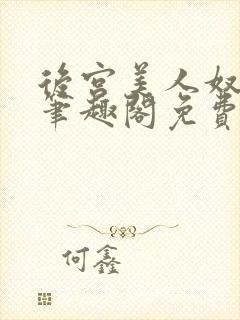 後宮美人奴
筆趣閣免費
何鑫